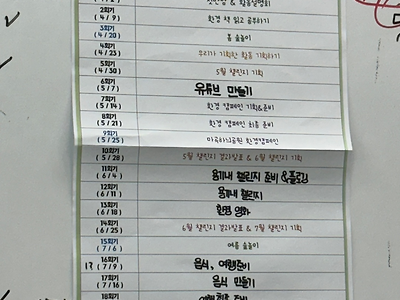 2회기
(4/9) 환경 책 읽고 공부하기
3회기
(4/20) 봄 숲놀이
4회기
(4/23) 우리가 기획한 활동 기획하기
5회기
(4/30) 5월 챌린지 기획
6회기
(5/7) 유튜브 만들기
7회기
(5/14) 환경 캠페인 기획&준비
8회기
(5/21) 환경 캠페인 최종 준비
9회기
(5/25) 마곡하늬공원 환경캠페인
10회기
(5/28) 5월 챌린지 결과발표 & 6월 챌린지 기획
11회기
(6/4) 용기내 챌린지 준비 &
12회기
(6/13) 용기내 챌린지
13회기
(6/18) 환경 영화
14회기
(6/25) 6월 챌린지 결과발표 & 7월 챌린지 기획
15회기
(7/6) 여름 숲놀이
16회기
(7/9) 음식, 여행준비
17회기
(7/16) 음식 만들기
18회기